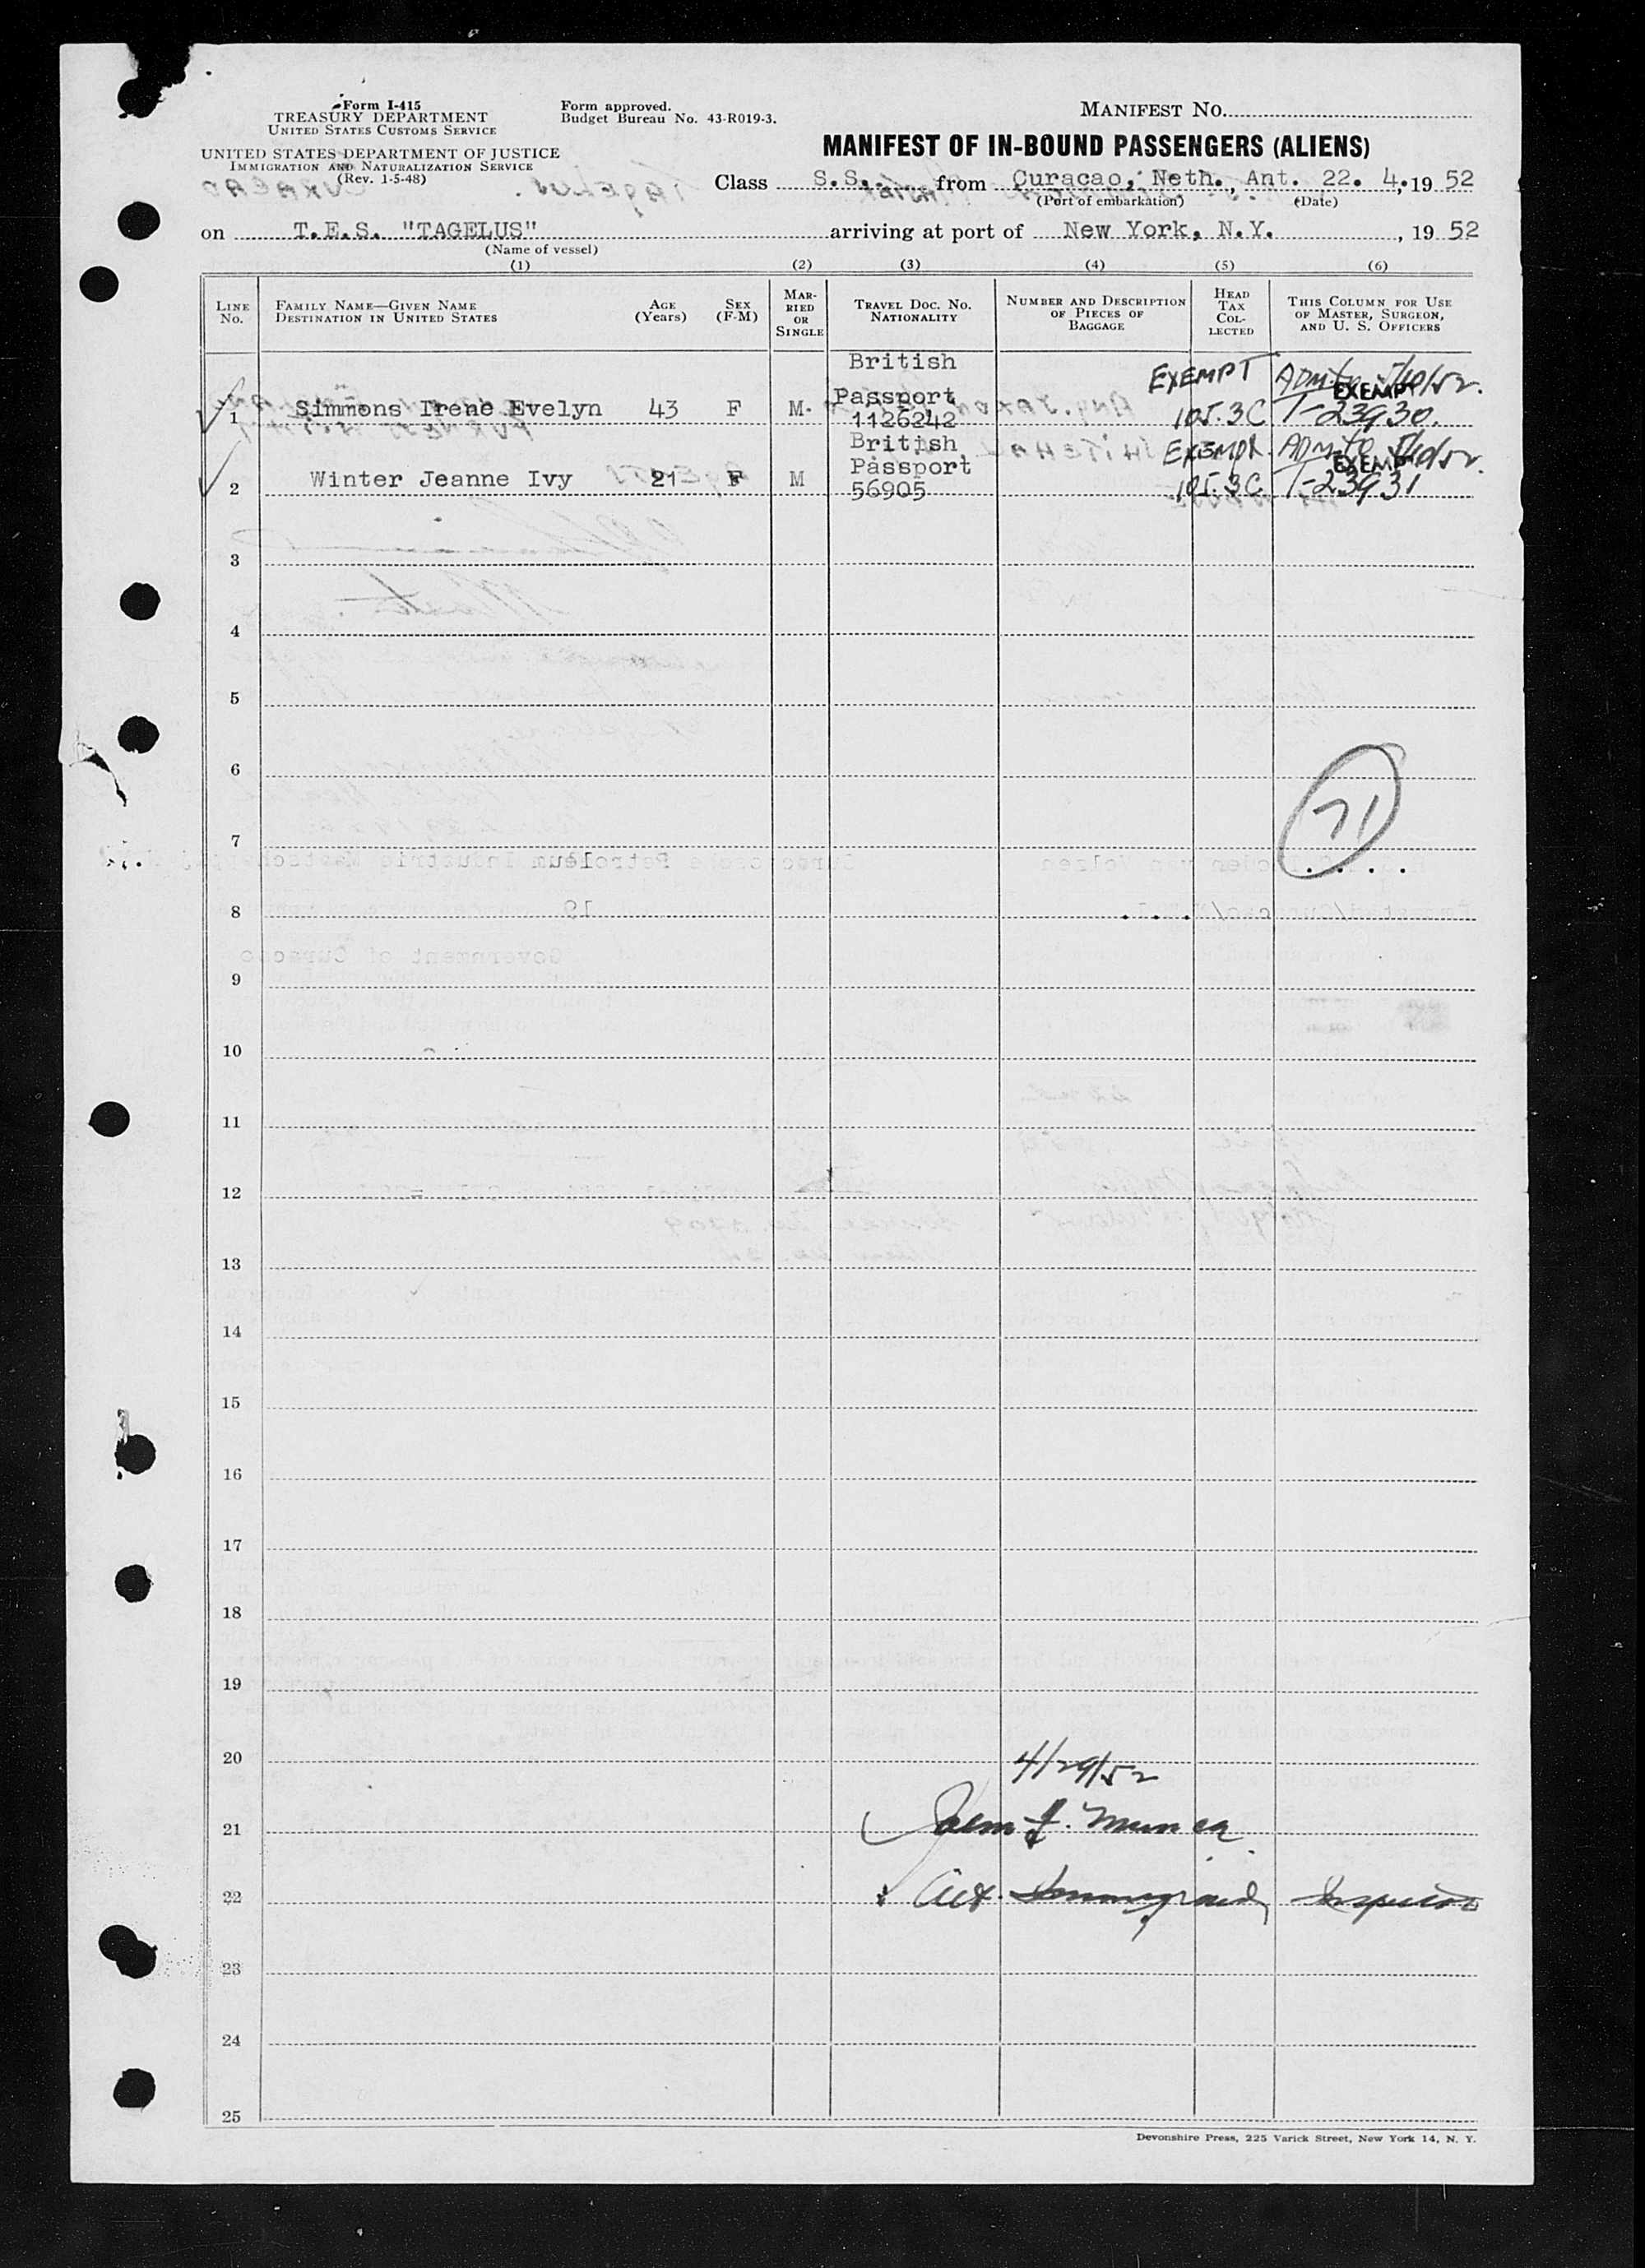 Form I-415
TREASURY DEPARTMENT
UNITED STATES CUSTOMS SERVICE
UNITED STATES DEPARTMENT OF JUSTICE
IMMIGRATION AND NATURALIZATION SERVICE
(Rev. 1-5-48)
Form approved.
Budget Bureau No. 43-R019-3.
MANIFEST NO.
MANIFEST OF IN-BOUND PASSENGERS (ALIENS)
Class S.S. from Curacao, Neth., Ant. 22. 4., 19 52
(Port of embarkation) (Date)
on T.E.S. "TAGELUS" arriving at port of New York, N.Y. , 19 52
(Name of vessel)
(1) (2) (3) (4) (5) (6)
LINE No. FAMILY NAME—GIVEN NAME DESTINATION IN UNITED STATES AGE (Years) SEX (F-M) MARRIED OR SINGLE TRAVEL DOC. NO. NATIONALITY NUMBER AND DESCRIPTION OF PIECES OF BAGGAGE HEAD TAX COLLECTED THIS COLUMN FOR USE OF MASTER, SURGEON, AND U. S. OFFICERS
British
1 Simmons Irene Evelyn 43 F M Passport 1126242 EXEMPT 105.3C EXEMPT T-23930.
British
2 Winter Jeanne Ivy 21 F M Passport 56905 105.3C EXEMPT T-23931
3
4
5
6
71
7
8
9
10
11
12
13
14
15
16
17
18
19
20 4/29/52
21
22
23
24
25
Devonshire Press, 225 Varick Street, New York 14, N. Y.